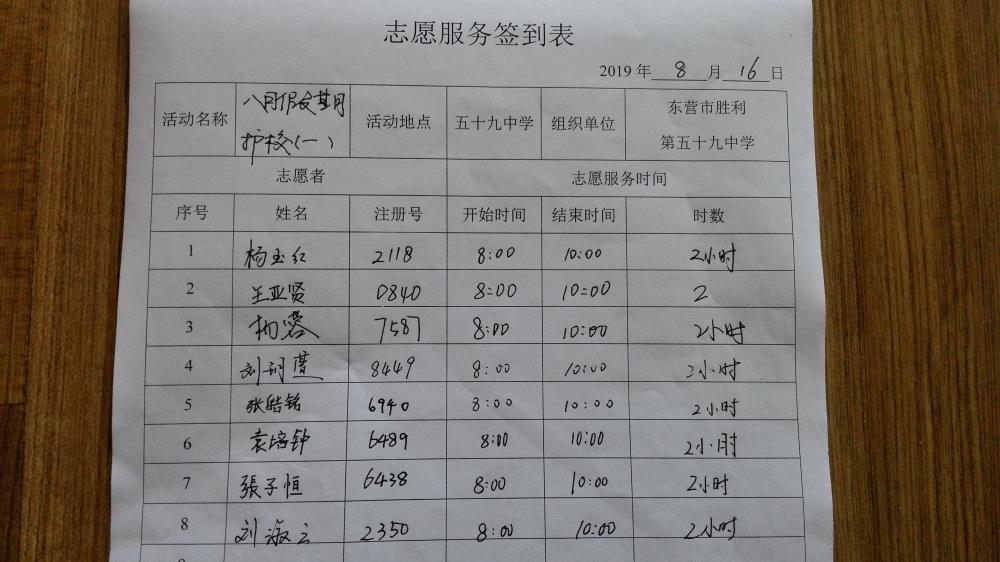 志愿服务签到表
2019 年 8 月 16 日
活动名称 八月假期 护校(一) 活动地点 五十九中学 组织单位 东营市胜利 第五十九中学
志愿者 志愿服务时间
序号 姓名 注册号 开始时间 结束时间 时数
1 杨玉红 2118 8:00 10:00 2小时
2 王亚贤 0840 8:00 10:00 2
3 7587 8:00 10:00 2小时
4 8449 8:00 10:00 2小时
5 张皓铭 6940 8:00 10:00 2小时
6 袁培钟 6489 8:00 10:00 2小时
7 張子恒 6438 8:00 10:00 2小时
8 刘淑云 2350 8:00 10:00 2小时